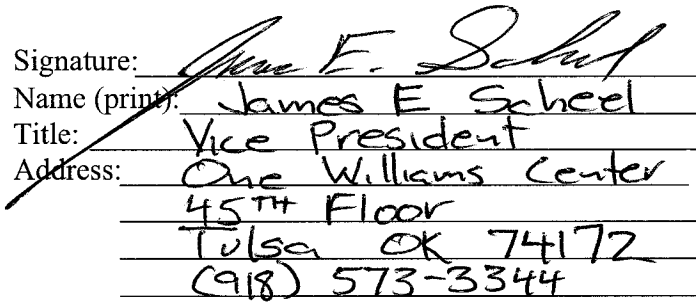 Signature: James E. Scheel
Name (print): James E Scheel
Title: Vice President
Address: One Williams Center
45TH Floor
Tulsa OK 74172
(918) 573-3344